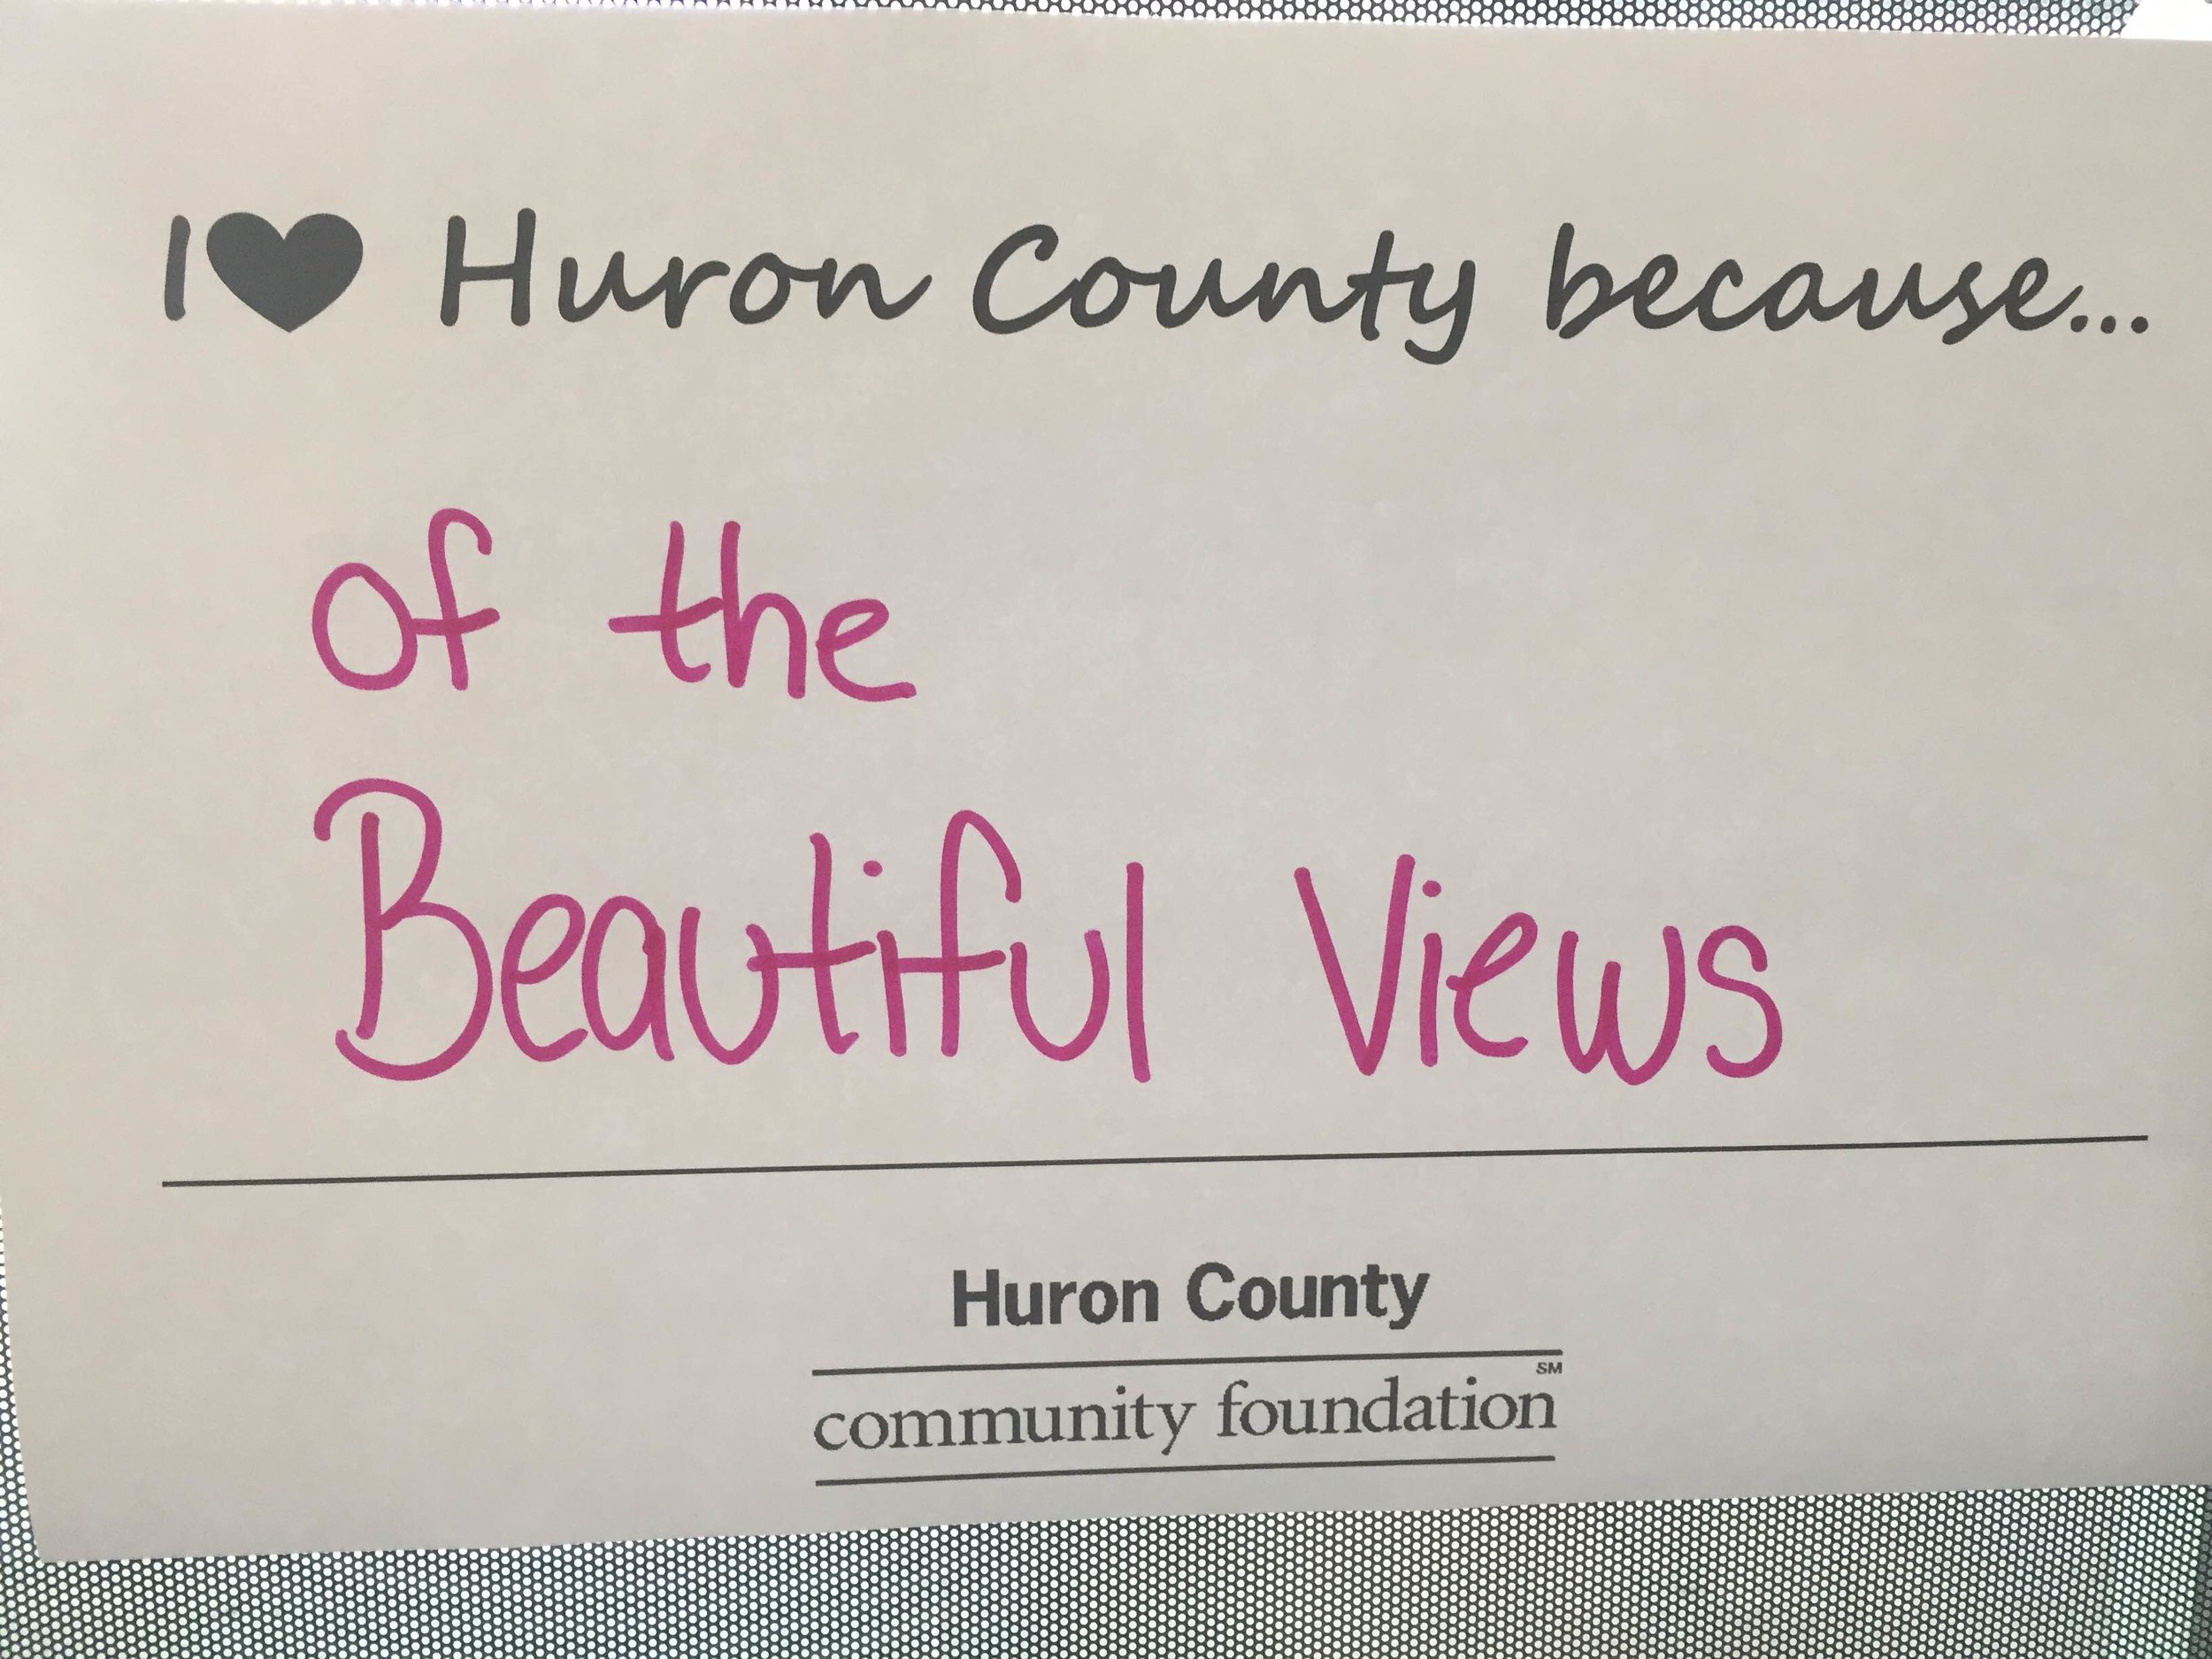 I♥ Huron County because...
of the
Beautiful Views
Huron County
community foundation℠